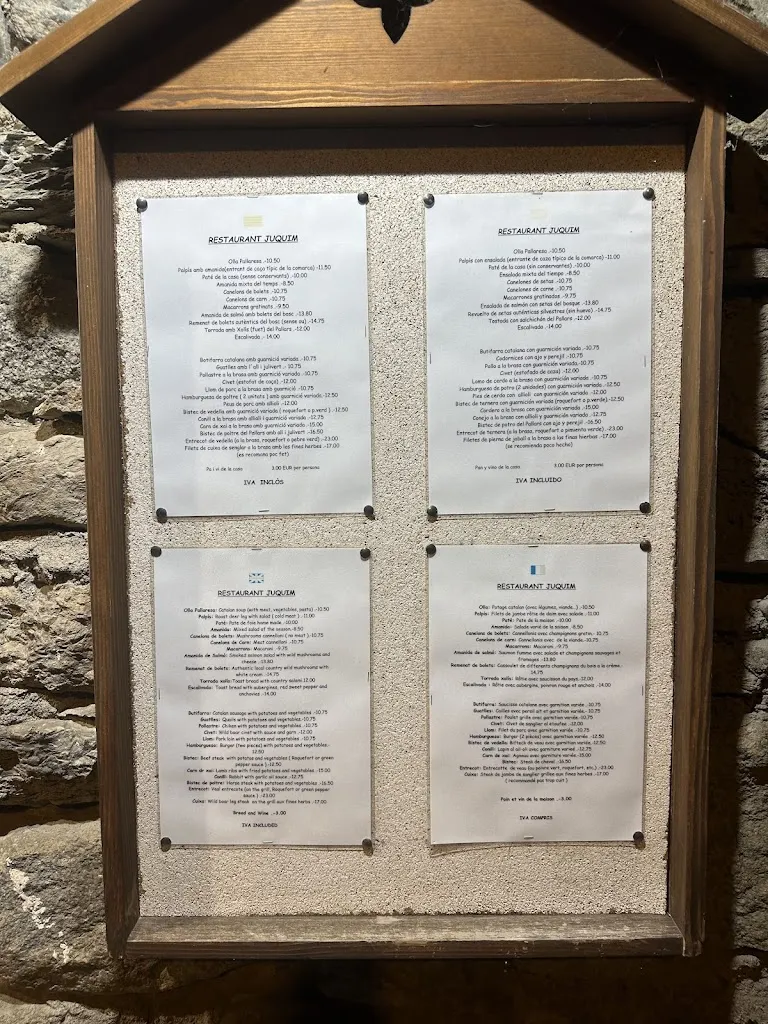 RESTAURANT JUQUIM
Olla Pallaresa .-10.50
Palpís amb amanida(entrant de caça típic de la comarca) -11.50
Paté de la casa (sense conservants) .-10.00
Amanida mixta del temps .-8.50
Canelons de bolets .-10.75
Canelons de carn .-10.75
Macarrons gratinats .-9.50
Amanida de salmó amb bolets del bosc .-13.80
Remenat de bolets autèntics del bosc (sense ou) .-14.75
Torrada amb Xolís (fuet) del Pallars .-12.00
Escalivada .- 14.00
Botifarra catalana amb guarnició variada .-10.75
Guatlles amb l'all i julivert .- 10.75
Pollastre a la brasa amb guarnició .-10.75
Civet (estofat de caça) .-12.00
Llom de porc a la brasa amb guarnició .-10.75
Hamburguesa de poltre ( 2 unitats ) amb guarnició variada .-12.50
Peus de porc amb allioli .-12.00
Bistec de vedella amb guarnició variada ( roquefort o p.verd ) .-12.50
Conill a la brasa amb allioli i guarnició variada .-12.75
Corn de xai a la brasa amb guarnició variada .-15.00
Bistec de poltre del Pallars amb all i julivert .-16.50
Entrecot de vedella (a la brasa, roquefort o pebre verd) .-23.00
Filets de cuixa de senglar a la brasa amb les fines herbes .-17.00
(es recomana poc fet)
Pa i vi de la casa 3.00 EUR per persona
IVA INCLÒS
RESTAURANT JUQUIM
Olla Pallaresa .-10.50
Palpís con ensalada (entrante de caza típico de la comarca) .-11.00
Paté de la casa (sin conservantes) .-10.00
Ensalada mixta del tiempo .-8.50
Canelones de setas .-10.75
Canelones de carne .-10.75
Macarrones gratinados .-9.75
Ensalada de salmón con setas del bosque .-13.80
Revuelto de setas auténticas silvestres (sin huevo) .-14.75
Tostada con salchichón del Pallars .-12.00
Escalivada .-14.00
Butifarra catalana con guarnición variada .-10.75
Codornices con ajo y perejil .-10.75
Pollo a la brasa con guarnición .-10.75
Civet (estofado de caza) .-12.00
Lomo de cerdo a la brasa con guarnición .-10.75
Hamburguesa de potro (2 unidades) con guarnición variada .-12.50
Pies de cerdo con allioli con guarnición .-12.00
Bistec de ternera con guarnición variada (roquefort o p.verde) -12.50
Cordero a la brasa con guarnición .-15.00
Conejo a la brasa con allioli y guarnición .-12.75
Bistec de potro del Pallars con ajo y perejil .-16.50
Entrecot de ternera (a la brasa, roquefort o pimienta verde) .-23.00
Filetes de pierna de jabalí a la brasa a las finas hierbas .-17.00
(se recomienda poco hecho)
Pan y vino de la casa 3.00 EUR por persona
IVA INCLUIDO
RESTAURANT JUQUIM
Olla Pallaresa: Catalan soup (with meat, vegetables, pasta) .-10.50
Palpís: Roast deer leg with salad ( cold meat ) .-11.00
Paté: Pate de foie home made .-10.00
Amanida: Mixed salad of the season .-8.50
Canelons de bolets: Mushrooms cannelloni ( no meat ) .-10.75
Canelons de Carn: Meat cannelloni .-10.75
Macarrons: Macaroni .-9.75
Amanida de Salmó: Smoked salmon salad with wild mushrooms and
cheese .-13.80
Remenat de bolets: Authentic local country wild mushrooms with
white cream .-14.75
Torrada xolís: Toast bread with country salami 12.00
Escalivada: Toast bread with aubergines, red sweet pepper and
anchovies .-14.00
Botifarra: Catalan sausage with potatoes and vegetables .-10.75
Guatlles: Quails with potatoes and vegetables .-10.75
Pollastre: Chicken with potatoes and vegetables .-10.75
Civet: Wild boar civet with sauce and garn .-12.00
Llom: Pork loin with potatoes and vegetables .-10.75
Hamburguesa: Burger (two pieces) with potatoes and vegetables.-
12.50
Bistec: Beef steak with potatoes and vegetables ( Roquefort or green
pepper sauce ) .-12.50
Corn de xai: Lamb ribs with fried potatoes and vegetables .-15.00
Conill: Rabbit with garlic oil sauce .-12.75
Bistec de poltre: Horse steak with potatoes and vegetables .-16.50
Entrecot: Veal entrecote (on the grill, Roquefort or green pepper
sauce ) .-23.00
Cuixa: Wild boar leg steak on the grill aux fines herbs .-17.00
Bread and Wine .-3.00
IVA INCLUDED
RESTAURANT JUQUIM
Olla: Potage catalan (avec légumes, viande..) .-10.50
Palpís: Filets de jambe rôtie de daim avec salade .-11.00
Paté: Pâté de la maison .-10.00
Amanida: Salade varié de la saison .-8.50
Canelons de bolets: Cannellonis avec champignons gratin .-10.75
Canelons de carn: Cannellonis avec de la viande.-10.75
Macarrons: Macaroni .-9.75
Amanida de salmó: Saumon fumme avec salade et champignons sauvages et
fromages .-13.80
Remenat de bolets: Cassoulet de differents champignons du bois a la crème .-
14.75
Torrada xolís: Rôtie avec saucisson du pays .-12.00
Escalivada : Rôtie avec aubergine, poivron rouge et anchois .-14.00
Botifarra: Saucisse catalane avec garnition variée .-10.75
Guatlles: Cailles avec persil ail et garnition variée.-10.75
Pollastre: Poulet grille avec garnition variée.-10.75
Civet: Civet de sanglier al étoufee .-12.00
Llom: Filet du porc avec garnition variée .-10.75
Hamburguesa: Burger (2 pièces) avec garnition variée .-12.50
Bistec de vedella: Bifteck de veau avec garnition variée .-12.50
Conill: Lapin al ail avec garnition variée .-12.75
Corn de xai: Agneau avec garnition variée .-15.00
Bistec: Steak de cheval .-16.50
Entrecot: Entrecotte de veau (au poivre vert, roquefort, etc.) .-23.00
Cuixa: Steak de jambe de sanglier grillée aux fines herbes .-17.00
( recommandé pas trop cuit )
Pain et vin de la maison .-3.00
IVA COMPRIS